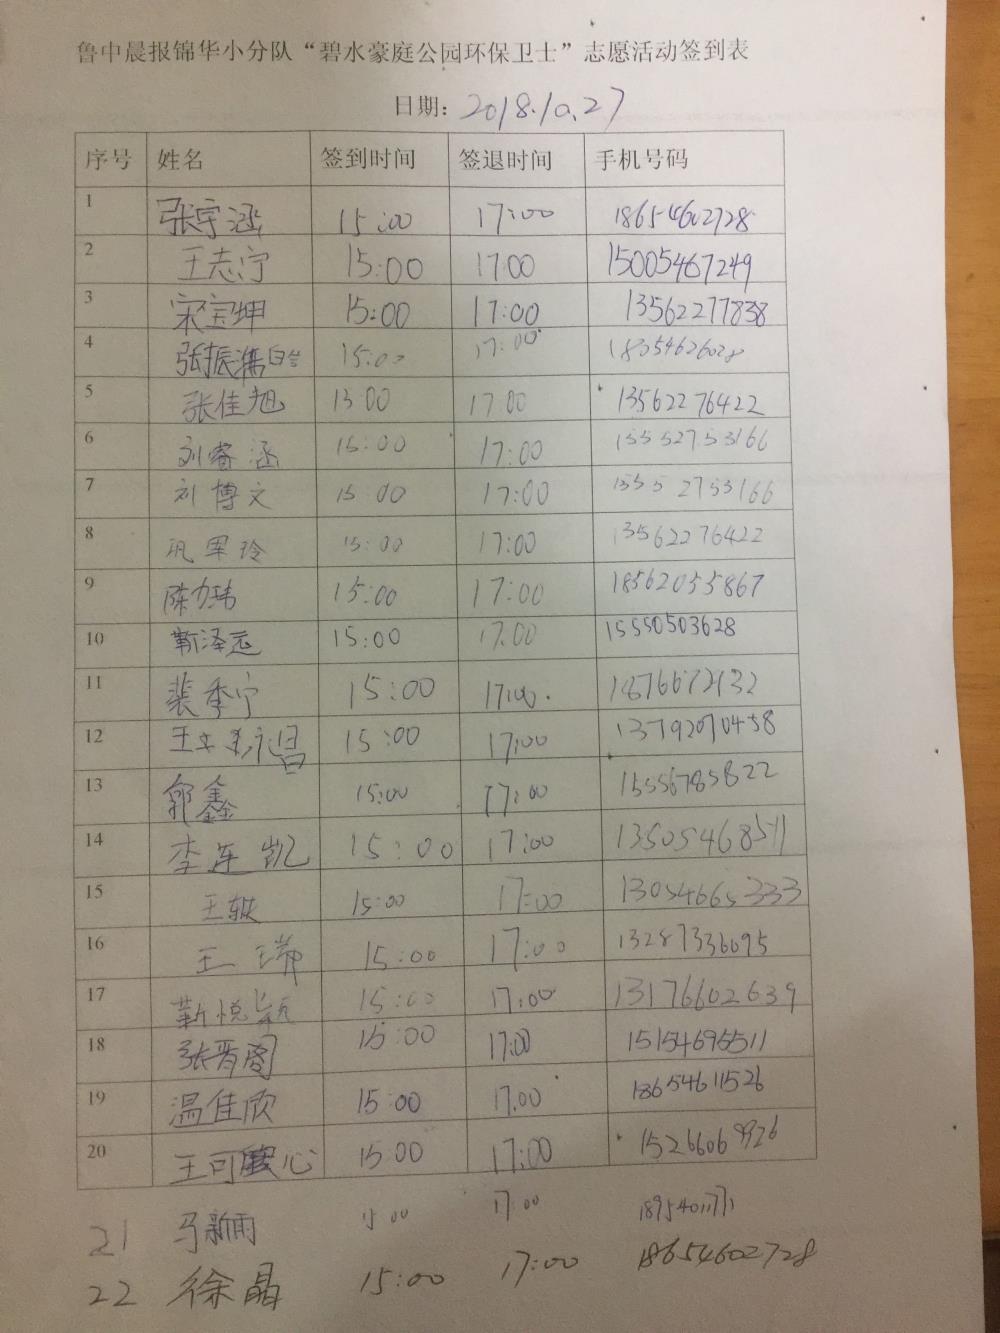 鲁中晨报锦华小分队“碧水豪庭公园环保卫士”志愿活动签到表
日期：2018.10.27
序号 姓名 签到时间 签退时间 手机号码
1 张宇涵 15:00 17:00 18654602728
2 王志宁 15:00 17:00 15005467249
3 宋宝坤 15:00 17:00 13562277838
4 15:00 17:00 18054626028
5 张佳旭 15 00 17 00 13562276422
6 刘睿涵 15:00 17:00 15552753166
7 刘博文 15:00 17:00 15552753166
8 巩军玲 15:00 17:00 13562276422
9 陈力玮 15:00 17:00 18562055867
10 靳泽远 15:00 17.00 15550503628
11 裴季宁 15:00 17:00.
12 15:00 17:00 13792070458
13 郭鑫 15:00 17:00 15556785822
14 李连凯 15:00 17:00 13505468511
15 王轶 15:00 17:00 13054665333
16 王瑞 15:00 17:00 13287336095
17 靳悦颖 15:00 17:00 13176602639
18 张晋阁 15:00 17:00 15154695511
19 温佳欣 15:00 17.00 18654611526
20 王可心 15:00 17:00 15266069926
21 马新雨 15 00 17:00
22 徐晶 15:00 17:00 18654602728